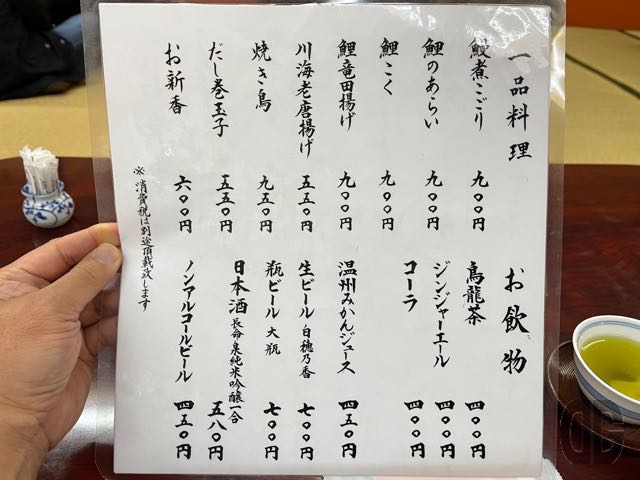 一品料理
鰻煮こごり 九〇〇円
鯉のあらい 九〇〇円
鯉こく 九〇〇円
鯉竜田揚げ 九〇〇円
川海老唐揚げ 五五〇円
焼き鳥 九五〇円
だし巻玉子 五五〇円
お新香 六〇〇円
お飲物
烏龍茶 四〇〇円
ジンジャーエール 四〇〇円
コーラ 四〇〇円
温州みかんジュース 四五〇円
生ビール 白穂乃香 七〇〇円
瓶ビール 大瓶 七〇〇円
日本酒 長命泉純米吟醸一合 五八〇円
ノンアルコールビール 四五〇円
※消費税は別途頂戴致します